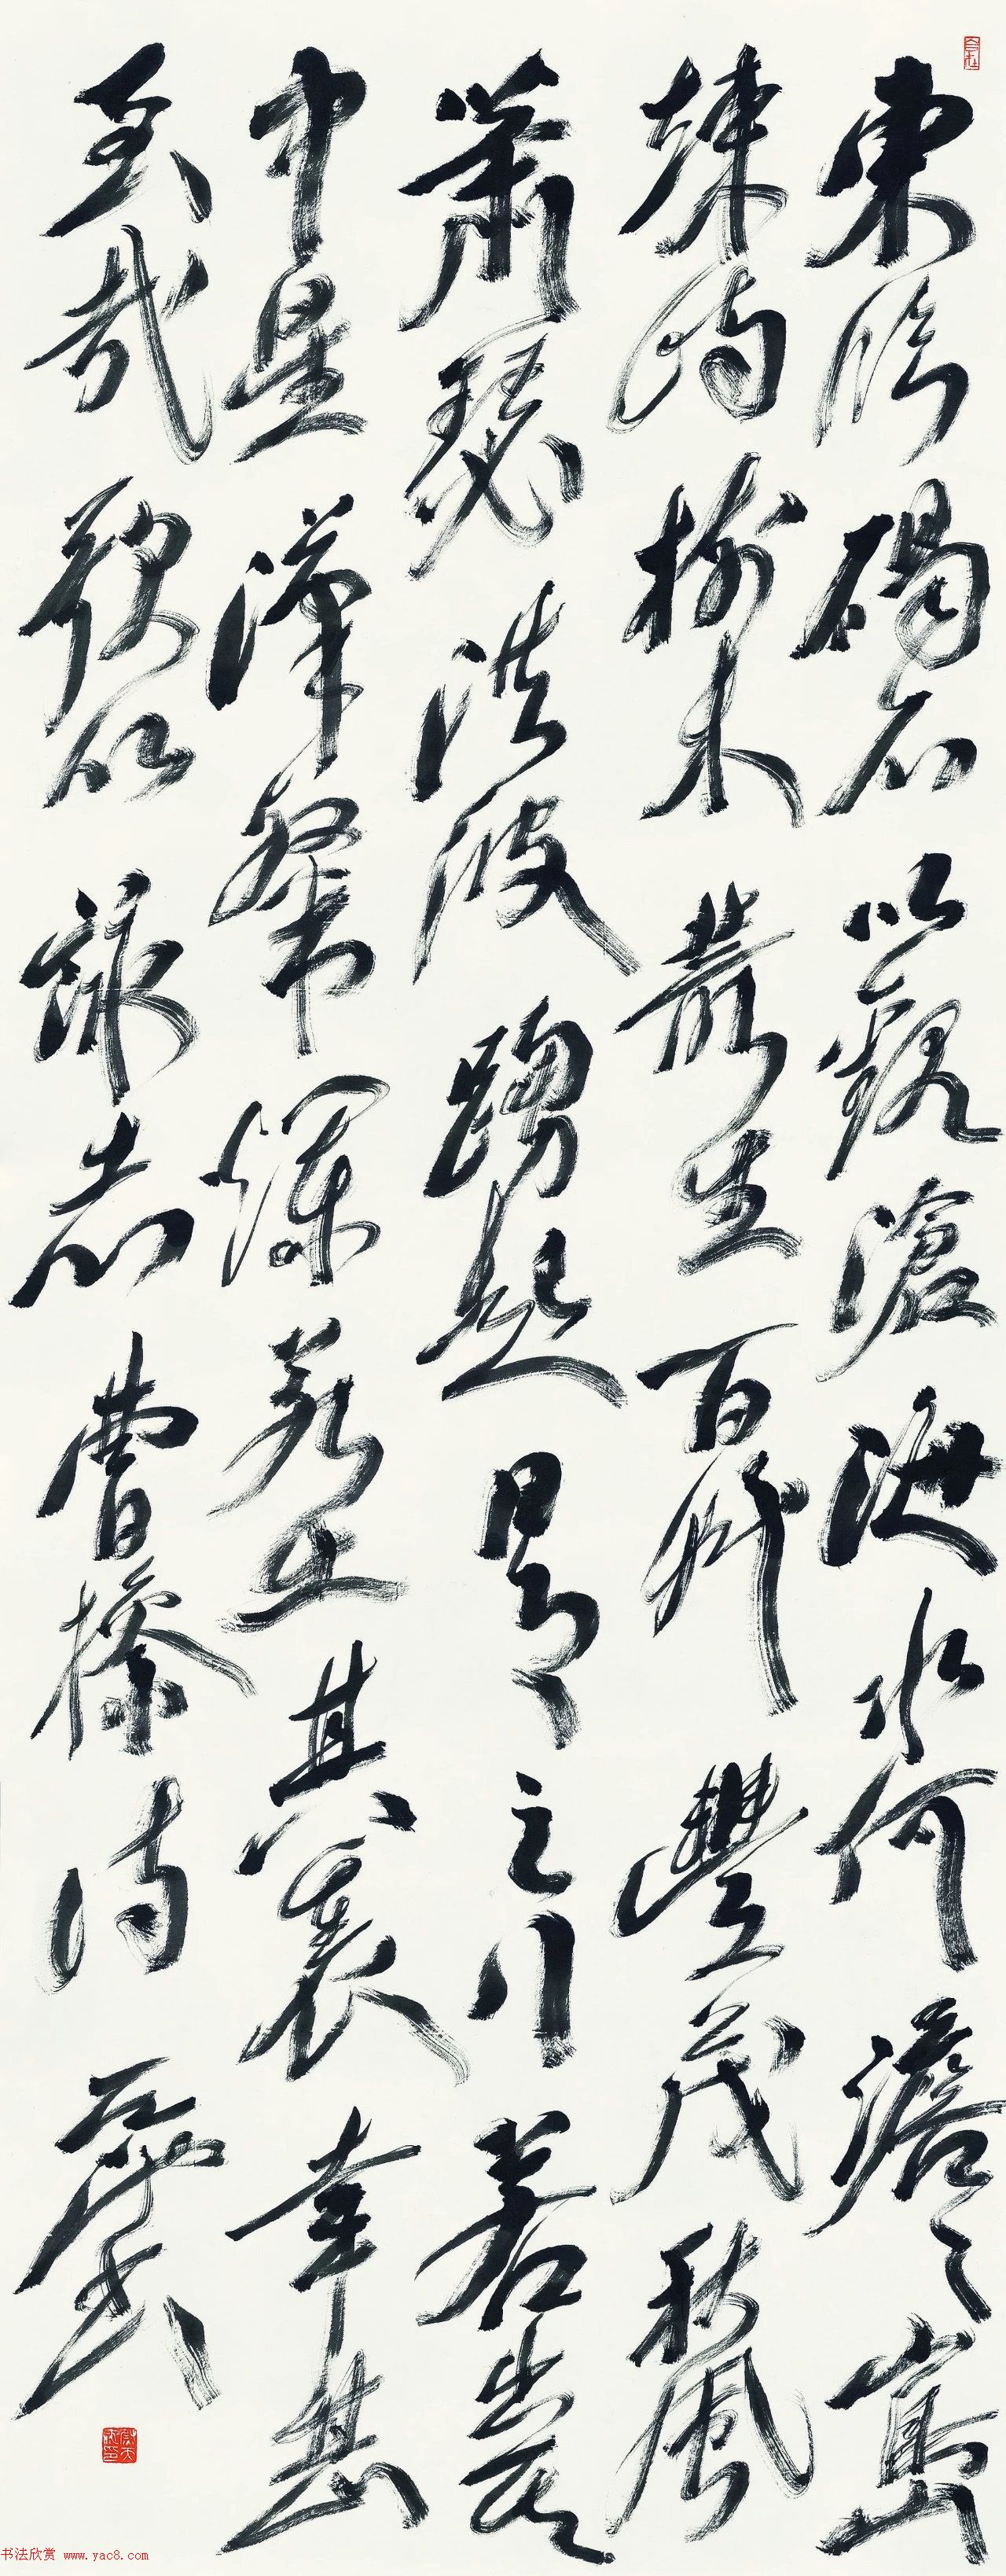 東臨碣石以觀滄海水何澹〻山島
竦峙樹木叢生百草豐茂秋風
蕭瑟洪波踴起日月之行若出其
中星漢粲爛若出其裏幸甚
至哉歌以詠志曹操詩 書
书法欣赏 www.yac8.com